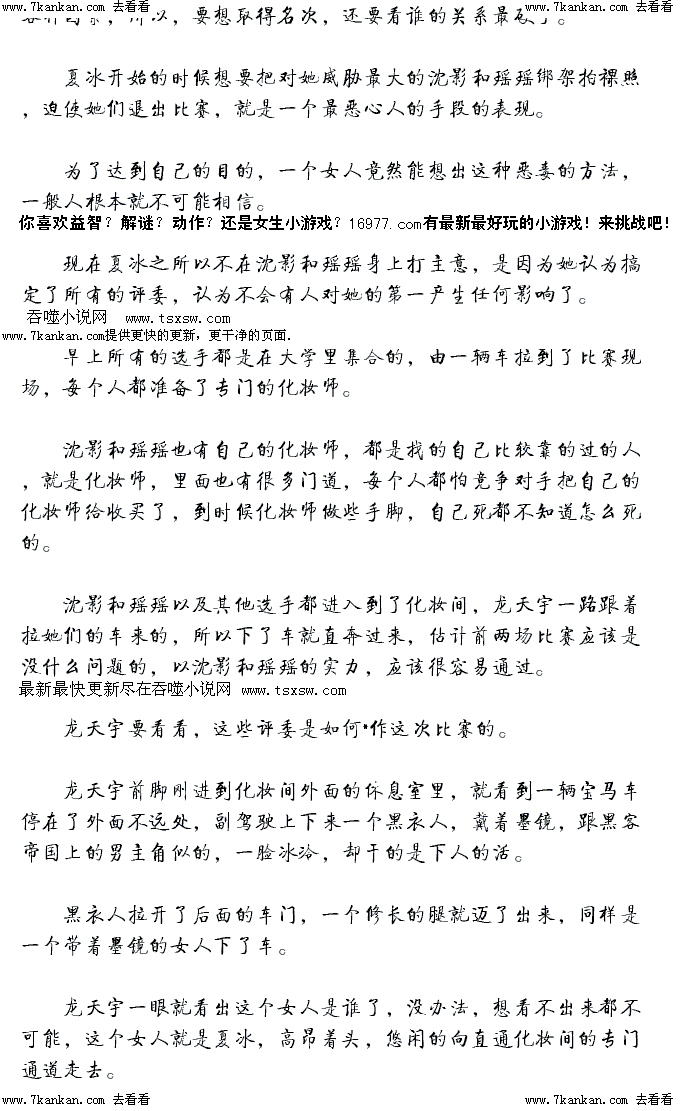 www.7kankan.com 去看看 www.7kankan.com 去看看
，所以，要想取得名次，还要看谁的关系最硬了。
夏冰开始的时候想要把对她威胁最大的沈影和瑶瑶绑架拍裸照
，迫使她们退出比赛，就是一个最恶心人的手段的表现。
为了达到自己的目的，一个女人竟然能想出这种恶毒的方法，
一般人根本就不可能相信。
你喜欢益智？解谜？动作？还是女生小游戏？16977.com有最新最好玩的小游戏！来挑战吧！
现在夏冰之所以不在沈影和瑶瑶身上打主意，是因为她认为搞
定了所有的评委，认为不会有人对她的第一产生任何影响了。
吞噬小说网 www.tsxsw.com
www.7kankan.com提供更快的更新，更干净的页面.
早上所有的选手都是在大学里集合的，由一辆车拉到了比赛现
场，每个人都准备了专门的化妆师。
沈影和瑶瑶也有自己的化妆师，都是找的自己比较靠的过的人
，就是化妆师，里面也有很多门道，每个人都怕竞争对手把自己的
化妆师给收买了，到时候化妆师做些手脚，自己死都不知道怎么死
的。
沈影和瑶瑶以及其他选手都进入到了化妆间，龙天宇一路跟着
拉她们的车来的，所以下了车就直奔过来，估计前两场比赛应该是
没什么问题的，以沈影和瑶瑶的实力，应该很容易通过。
最新最快更新尽在吞噬小说网 www.tsxsw.com
龙天宇要看看，这些评委是如何*作这次比赛的。
龙天宇前脚刚进到化妆间外面的休息室里，就看到一辆宝马车
停在了外面不远处，副驾驶上下来一个黑衣人，戴着墨镜，跟黑客
帝国上的男主角似的，一脸冰冷，却干的是下人的活。
黑衣人拉开了后面的车门，一个修长的腿就迈了出来，同样是
一个带着墨镜的女人下了车。
龙天宇一眼就看出这个女人是谁了，没办法，想看不出来都不
可能，这个女人就是夏冰，高昂着头，悠闲的向直通化妆间的专门
通道走去。
www.7kankan.com 去看看 www.7kankan.com 去看看